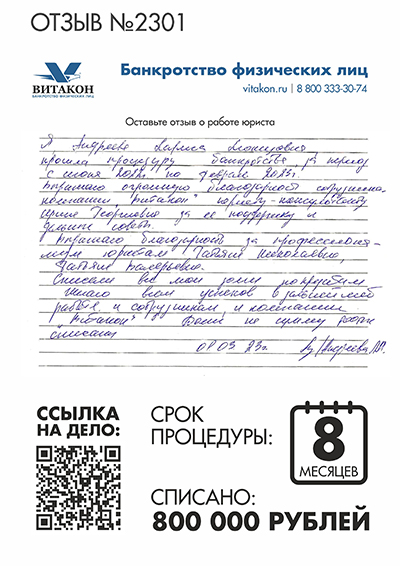 ОТЗЫВ №2301
ВИТАКОН
БАНКРОТСТВО ФИЗИЧЕСКИХ ЛИЦ
Банкротство физических лиц
vitakon.ru | 8 800 333-30-74
Оставьте отзыв о работе юриста
Я Андреева Лариса
прошла процедуру банкротства за период
с июня 2022г по февраль 2023г.
Выражаю огромную благодарность
компании "Витакон" юристу-консультанту
Ирине Георгиевне за ее поддержку и
советы.
Выражаю благодарность за профессиона-
лизм юристам Татьяне Николаевне,
Татьяне Валерьевне.
Списали все мои долги
желаю всем успехов в дальнейшей
работе и сотрудникам и компании
"Витакон"
списали
09 03 23г.
ССЫЛКА
НА ДЕЛО:
СРОК
ПРОЦЕДУРЫ:
8
МЕСЯЦЕВ
СПИСАНО:
800 000 РУБЛЕЙ